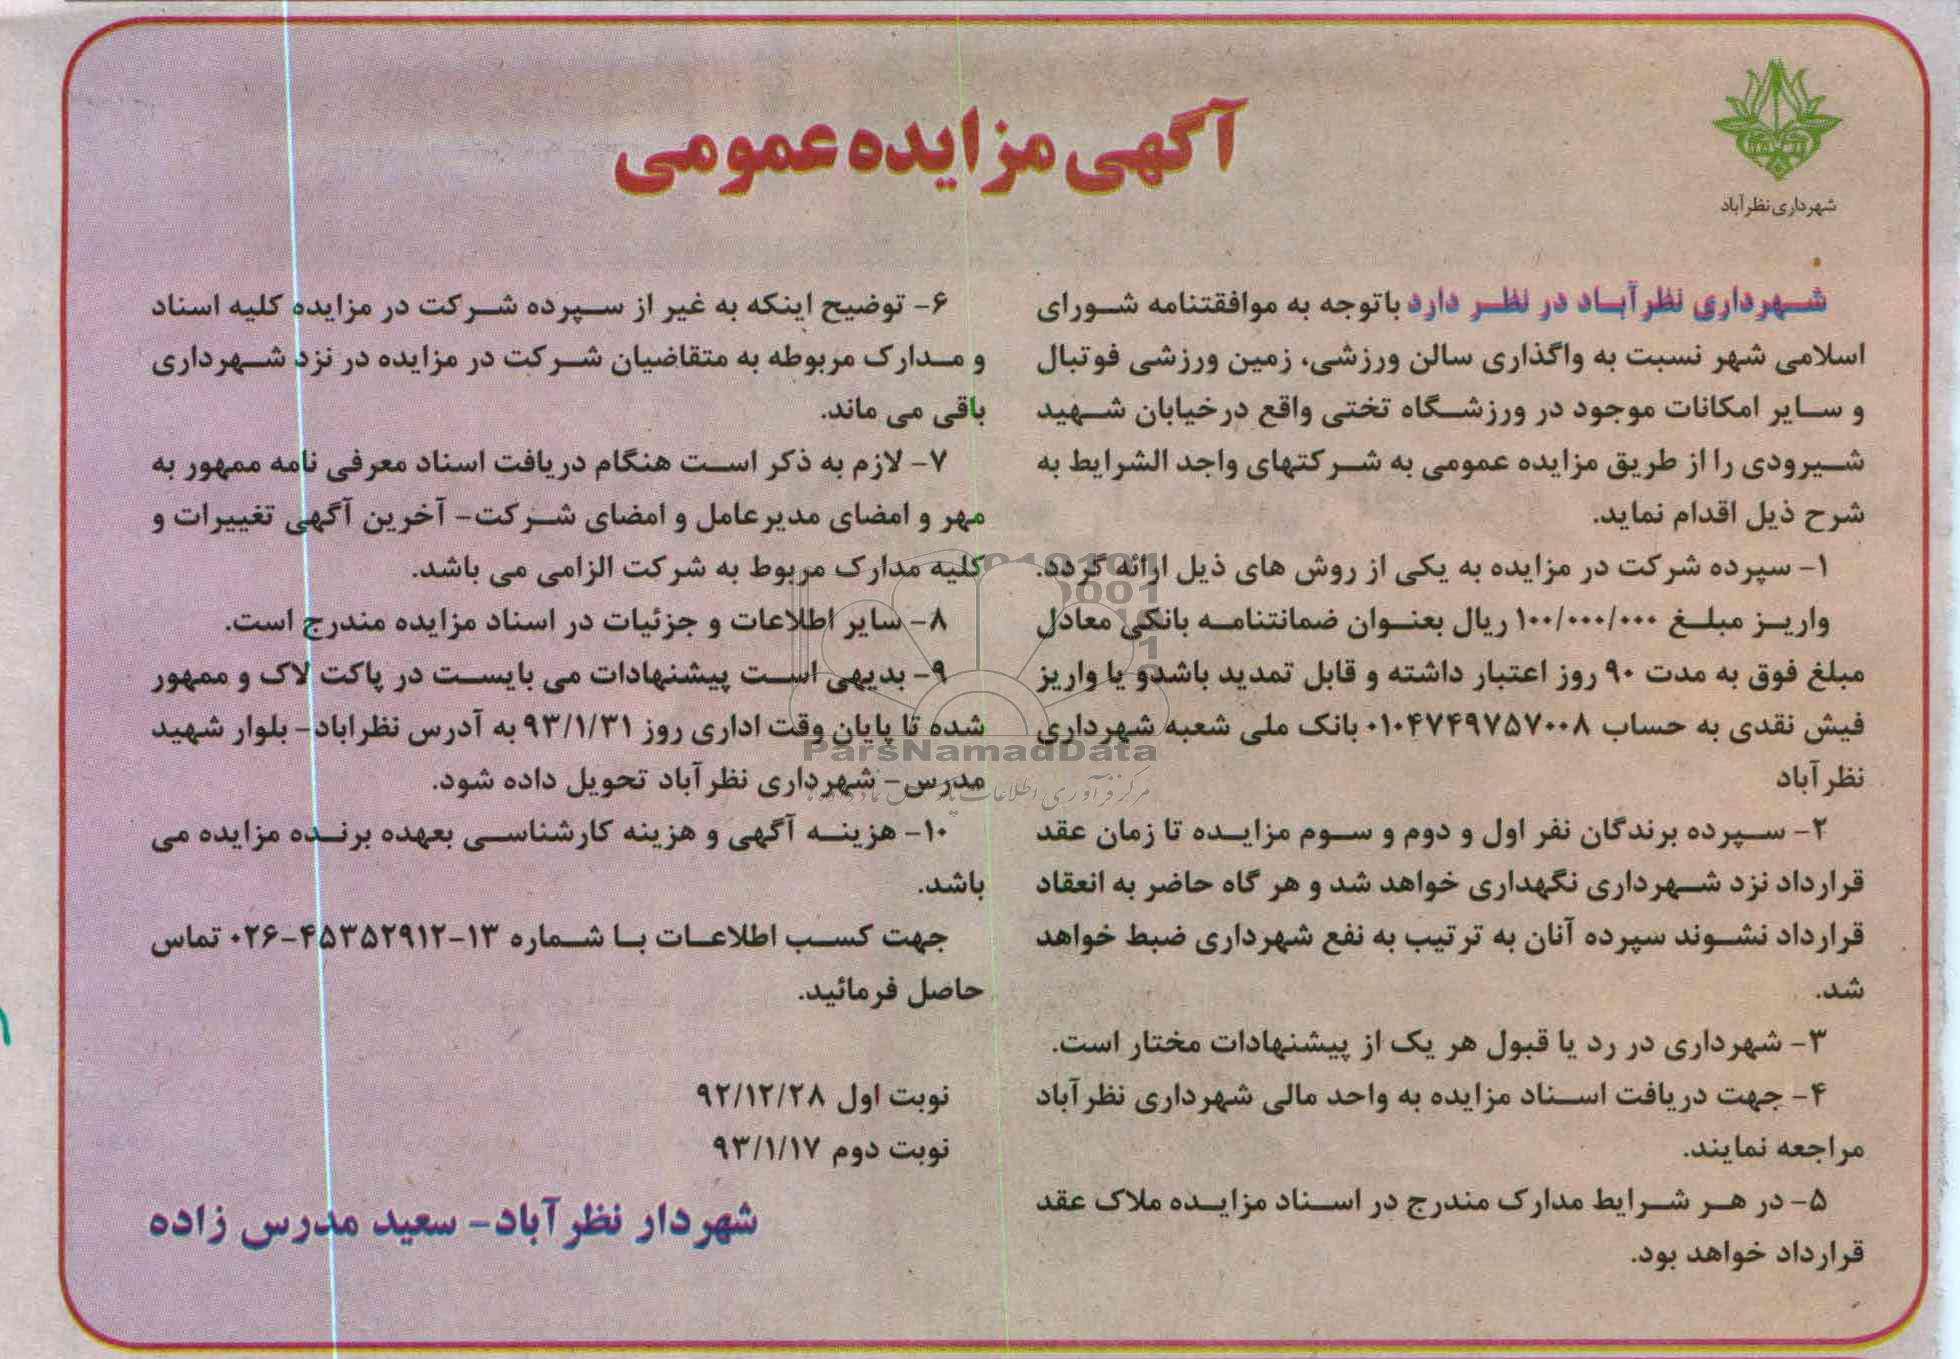 شهرداری نظرآباد
آگهی مزایده عمومی
شهرداری نظرآباد در نظر دارد باتوجه به موافقتنامه شورای
اسلامی شهر نسبت به واگذاری سالن ورزشی، زمین ورزشی فوتبال
و سایر امکانات موجود در ورزشگاه تختی واقع درخیابان شهید
شیرودی را از طریق مزایده عمومی به شرکتهای واجد الشرایط به
شرح ذیل اقدام نماید.
۱- سپرده شرکت در مزایده به یکی از روش های ذیل ارائه گردد.
واریز مبلغ ۱۰۰/۰۰۰/۰۰۰ ریال بعنوان ضمانتنامه بانکی معادل
مبلغ فوق به مدت ۹۰ روز اعتبار داشته و قابل تمدید باشدو یا واریز
فیش نقدی به حساب ۰۱۰۴۷۴۹۷۵۷۰۰۸ بانک ملی شعبه شهرداری
نظرآباد
۲- سپرده برندگان نفر اول و دوم و سوم مزایده تا زمان عقد
قرارداد نزد شهرداری نگهداری خواهد شد و هر گاه حاضر به انعقاد
قرارداد نشوند سپرده آنان به ترتیب به نفع شهرداری ضبط خواهد
شد.
۳- شهرداری در رد یا قبول هر یک از پیشنهادات مختار است.
۴- جهت دریافت اسناد مزایده به واحد مالی شهرداری نظرآباد
مراجعه نمایند.
۵- در هر شرایط مدارک مندرج در اسناد مزایده ملاک عقد
قرارداد خواهد بود.
۶- توضیح اینکه به غیر از سپرده شرکت در مزایده کلیه اسناد
و مدارک مربوطه به متقاضیان شرکت در مزایده در نزد شهرداری
باقی می ماند.
۷- لازم به ذکر است هنگام دریافت اسناد معرفی نامه ممهور به
مهر و امضای مدیرعامل و امضای شرکت- آخرین آگهی تغییرات و
کلیه مدارک مربوط به شرکت الزامی می باشد.
۸- سایر اطلاعات و جزئیات در اسناد مزایده مندرج است.
۹- بدیهی است پیشنهادات می بایست در پاکت لاک و ممهور
شده تا پایان وقت اداری روز ۹۳/۱/۳۱ به آدرس نظراباد- بلوار شهید
مدرس- شهرداری نظرآباد تحویل داده شود.
۱۰- هزینه آگهی و هزینه کارشناسی بعهده برنده مزایده می
باشد.
جهت کسب اطلاعات با شماره ۱۳-۴۵۳۵۲۹۱۲-۰۲۶ تماس
حاصل فرمائید.
نوبت اول ۹۲/۱۲/۲۸
نوبت دوم ۹۳/۱/۱۷
شهردار نظرآباد- سعید مدرس زاده
ParsNamadData